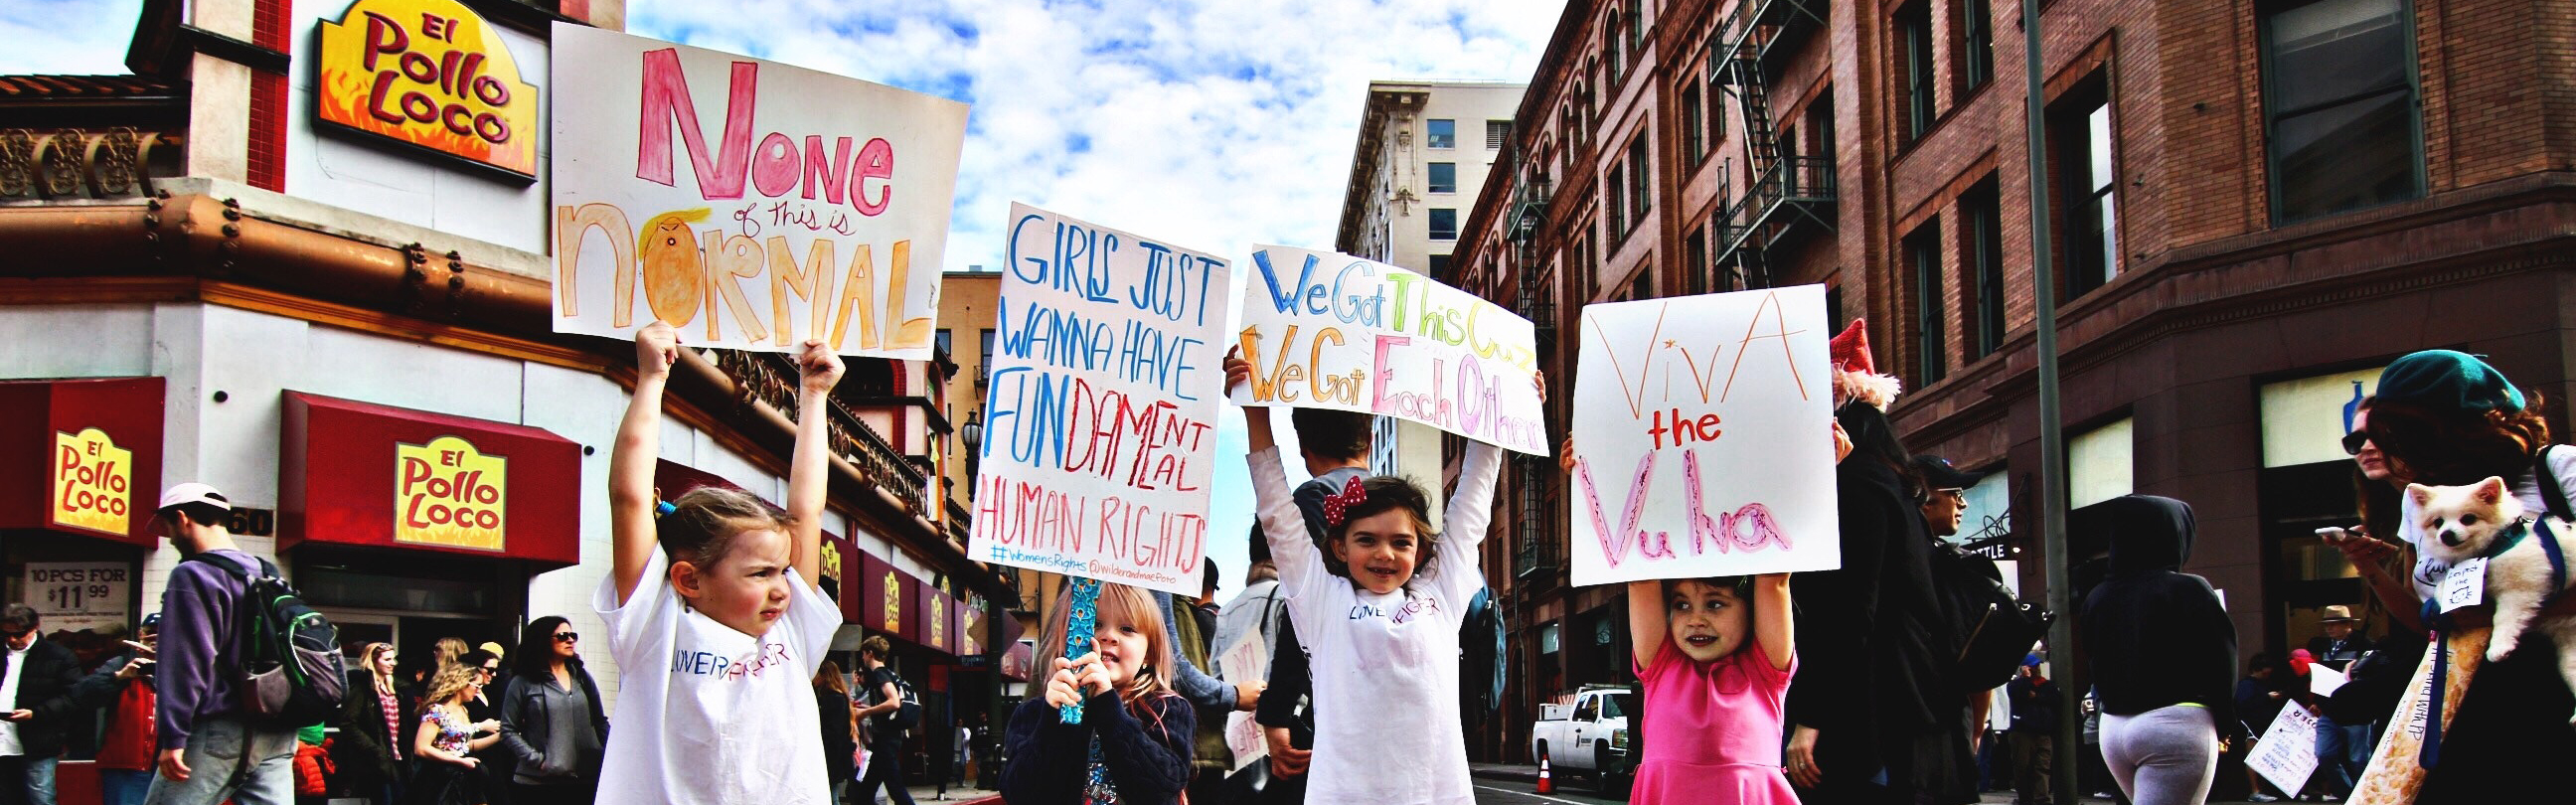 El
Pollo
Loco
None
of this is
NORMAL
GIRLS JUST
WANNA HAVE
FUNDAMENTAL
HUMAN RIGHTS
#WomensRights @wilderandmaefoto
We Got This Cuz
We Got Each Other
ViVA
the
Vulva
El
Pollo
Loco
El
Pollo
Loco
60
10 PCS FOR
$11 99
LOVER FIGHTER
LOVER FIGHTER